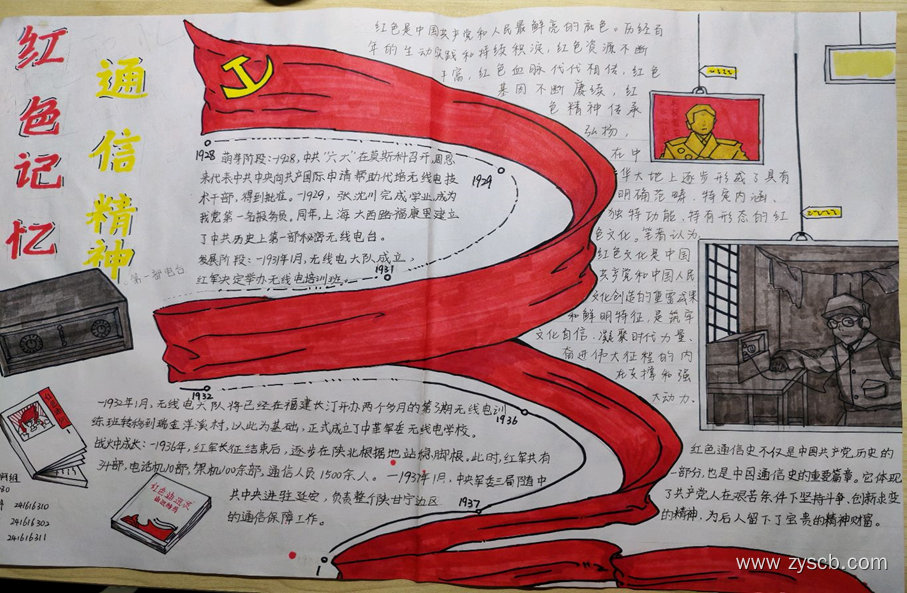 红色记忆
通信精神
红色是中国共产党和人民最鲜亮的底色。历经百
年的生动实践和持续积淀,红色资源不断
丰富,红色血脉代代相传,红色
基因不断赓续,红
色精神传承
弘扬,
在中
华大地上逐步形成了具有
明确范畴、特定内涵、
独特功能、特有形态的红
色文化。笔者认为,
红色文化是中国
共产党和中国人民
文化创造的重要成果
和鲜明特征,是筑牢
文化自信、凝聚时代力量、
奋进伟大征程的内
在支撑和强
大动力.
1928
萌芽阶段:-1928,中共“六大”在莫斯科召开,周恩
来代表中共中央向共产国际申请帮助代培无线电技
术干部,得到批准。-1929,张沈川完成学业,成为
我党第一名报务员。同年,上海大西路福康里建立
了中共历史上第一部秘密无线电台。
1929
发展阶段:-1931年1月,无线电大队成立,
红军决定举办无线电培训班。
1931
第一部电台
1932
-1932年1月,无线电大队将已经在福建长汀开办两个多月的第3期无线电训
练班转移到瑞金洋溪村,以此为基础,正式成立了中革军委无线电学校。
1936
战火中成长:-1936年,红军长征结束后,逐步在陕北根据地站稳脚根。此时,红军共有
电话机10部,
100余部,通信人员1500余人。-1937年1月,中央军委三局随中
共中央进驻延安,负责整个陕甘宁边区
的通信保障工作。
1937
红色通信史不仅是中国共产党历史的
一部分,也是中国通信史的重要篇章。它体现
了共产党人在艰苦条件下坚持斗争、创新求变
的精神,为后人留下了宝贵的精神财富。
24161310
24161302
24161311
www.zyscb.com